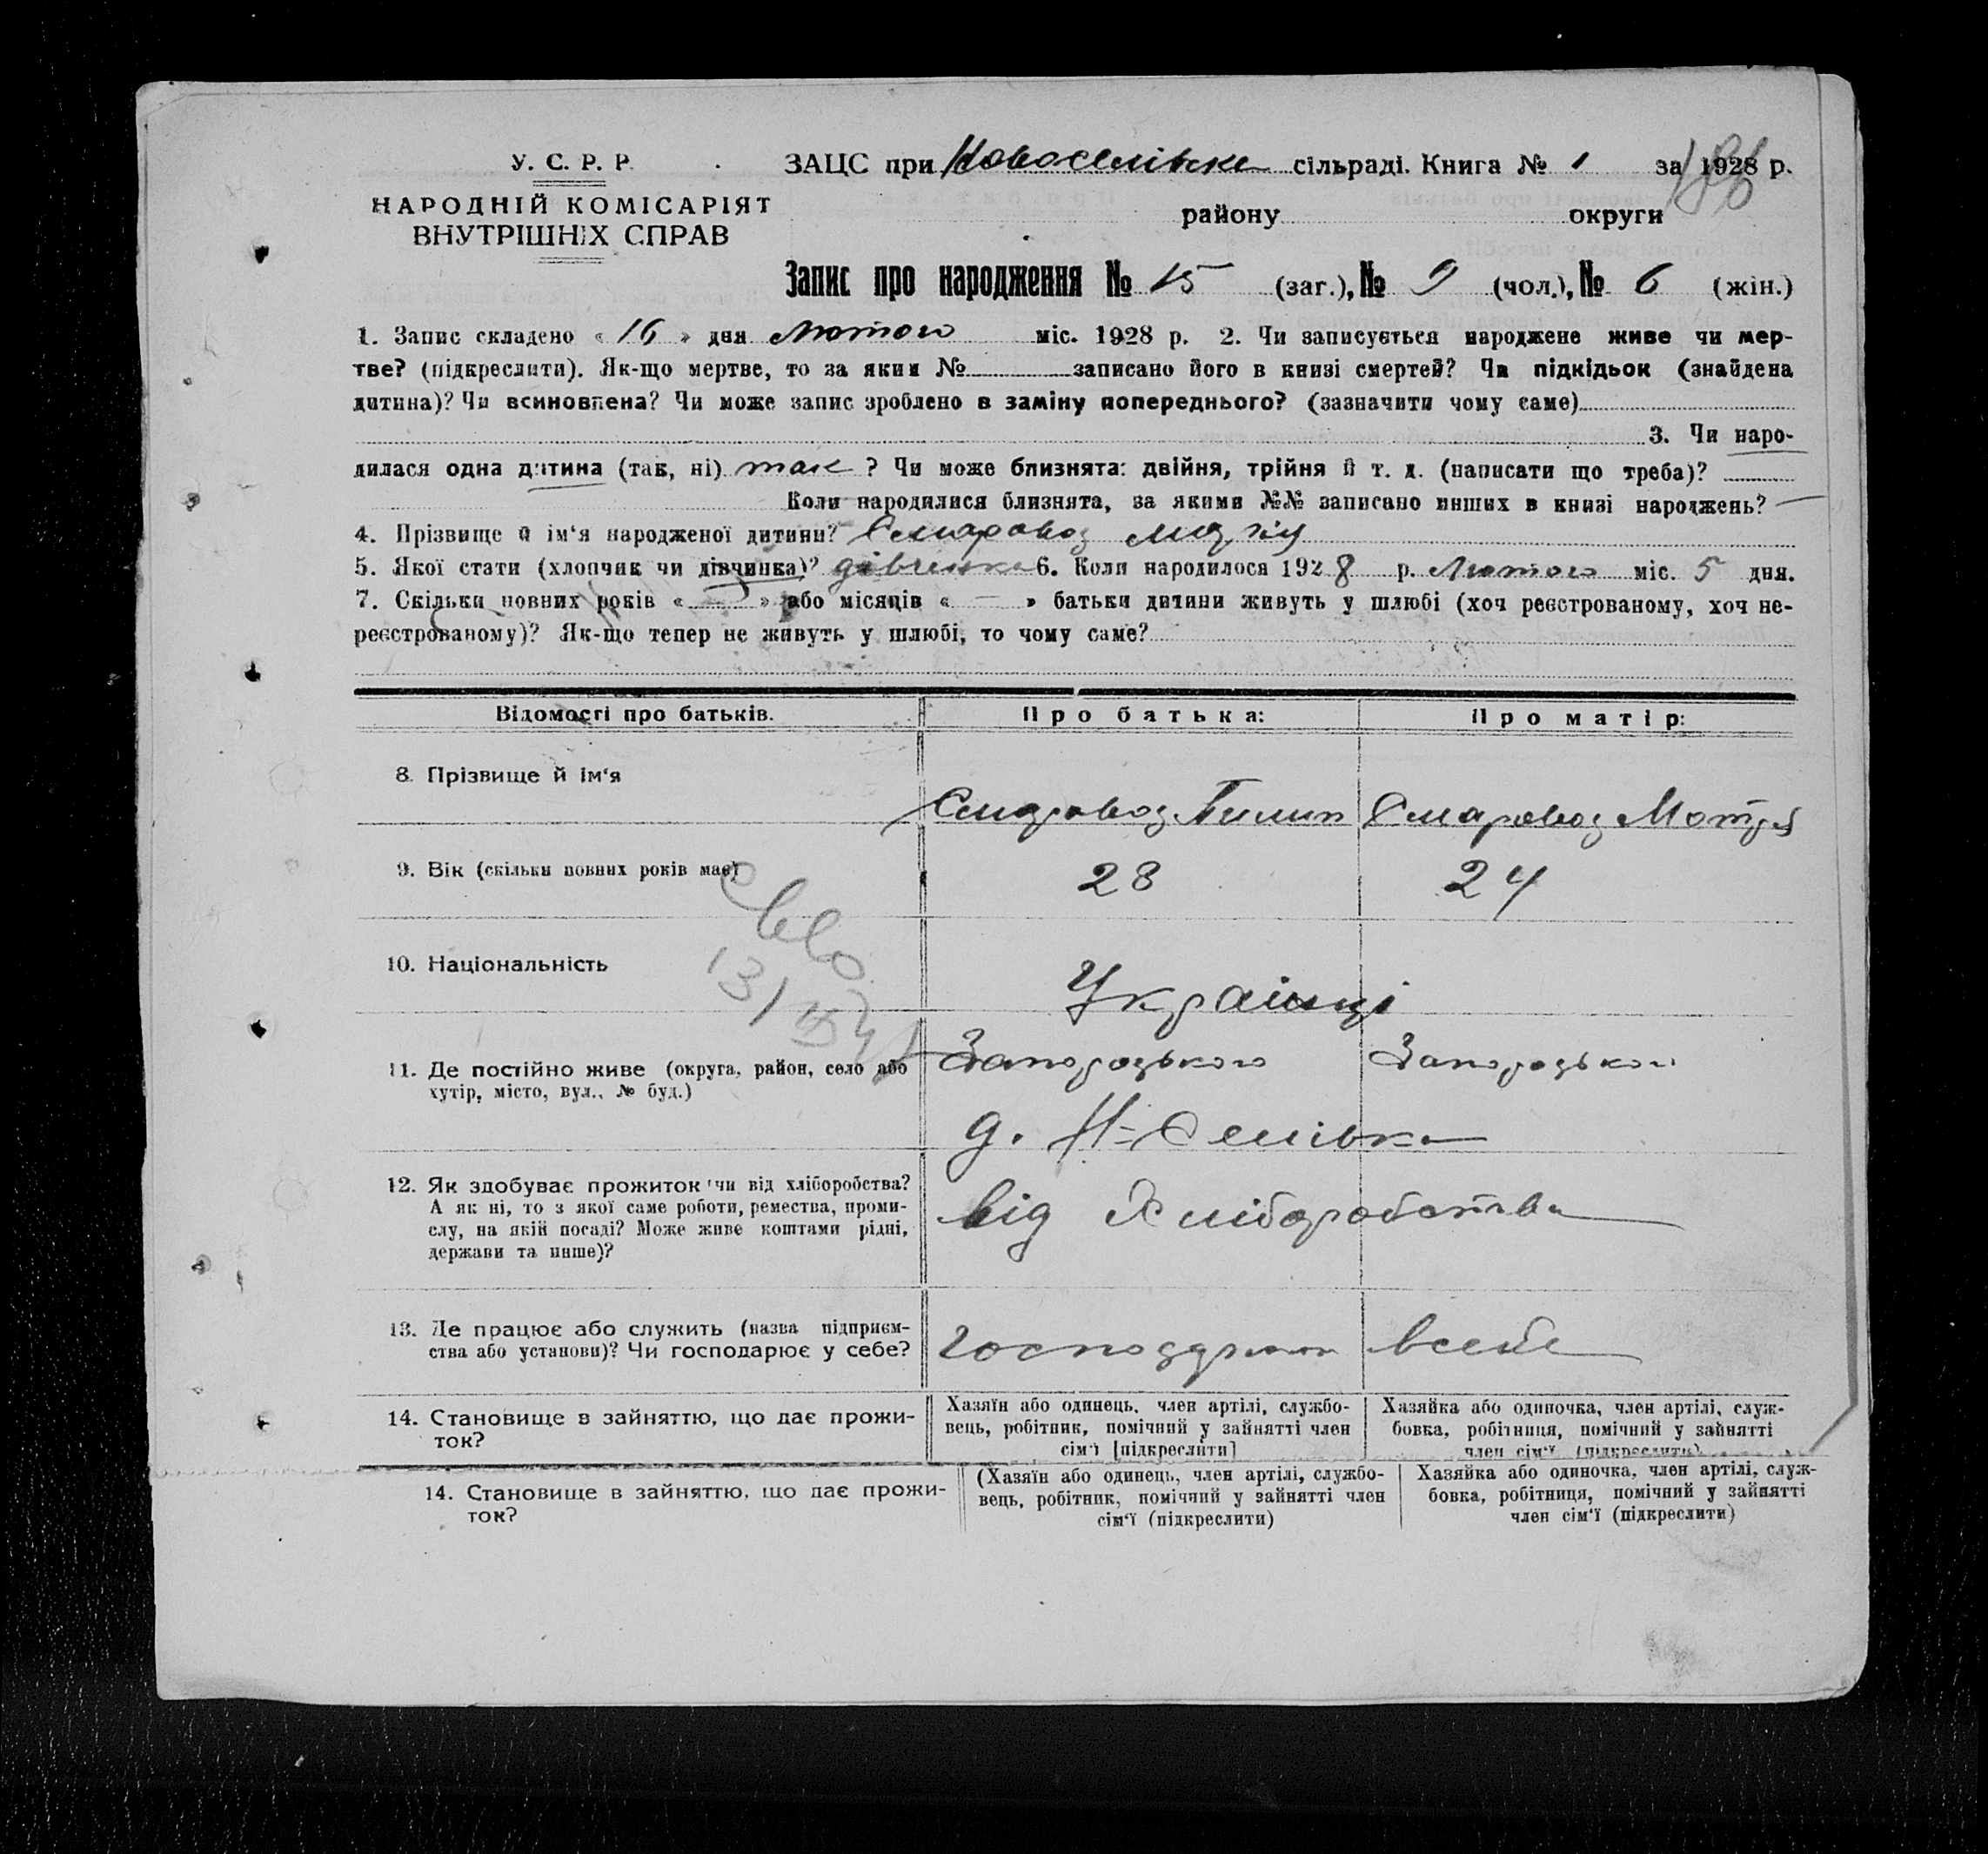 У. С. Р. Р.
НАРОДНІЙ КОМІСАРІЯТ
ВНУТРІШНІХ СПРАВ
ЗАЦС при Новоселівске сільраді. Книга № 1 за 1928 р.
району округи
Запис про народження № 15 (заг.), № 9 (чол.), № 6 (жін.)
1. Запис складено « 16 » дня Лютого міс. 1928 р. 2. Чи записується народжене живе чи мер-
тве? (підкреслити). Як-що мертве, то за яким № записано його в книзі смертей? Чи підкідьок (знайдена
дитина)? Чи всиновлена? Чи може запис зроблено в заміну попереднього? (зазначити чому саме)
3. Чи наро-
дилася одна дитина (так, ні) так ? Чи може близнята: двійня, трійня й т. д. (написати що треба)?
Коли народилися близнята, за якими №№ записано инших в книзі народжень? —
4. Прізвище й ім‘я народженої дитини?
5. Якої стати (хлопчик чи дівчинка)? дівчинка 6. Коли народилось 1928 р. Лютого міс. 5 дня.
7. Скільки повних років « — » або місяців « — » батьки дитини живуть у шлюбі (хоч реєстрованому, хоч не-
реєстрованому)? Як-що тепер не живуть у шлюбі, то чому саме?
Відомості про батьків. Про батька: Про матір:
8. Прізвище й ім‘я
Пилип Мотря
9. Вік (скільки повних років має) 28 24
10. Національність
Українці
11. Де постійно живе (округа, район, село або
хутір, місто, вул., № буд.)
Запорозького Запорозького
д. Н-Селівка
12. Як здобуває прожиток (чи від хліборобства?
А як ні, то з якої саме роботи, ремества, проми-
слу, на якій посаді? Може живе коштами рідні,
держави та инше)?
від Хліборобства
13. Де працює або служить (назва підприєм-
ства або установи)? Чи господарює у себе?
всебе
14. Становище в зайняттю, що дає прожи-
ток?
Хазяїн або одинець, член артілі, службо-
вець, робітник, помічний у зайнятті член
сім‘ї [підкреслити]
Хазяйка або одиночка, член артілі, служ-
бовка, робітниця, помічний у зайнятті
член сім‘ї (підкреслити)
14. Становище в зайняттю, що дає прожи-
ток?
(Хазяїн або одинець, член артілі, службо-
вець, робітник, помічний у зайнятті член
сім‘ї (підкреслити)
Хазяйка або одиночка, член артілі, служ-
бовка, робітниця, помічний у зайнятті
член сім‘ї (підкреслити)